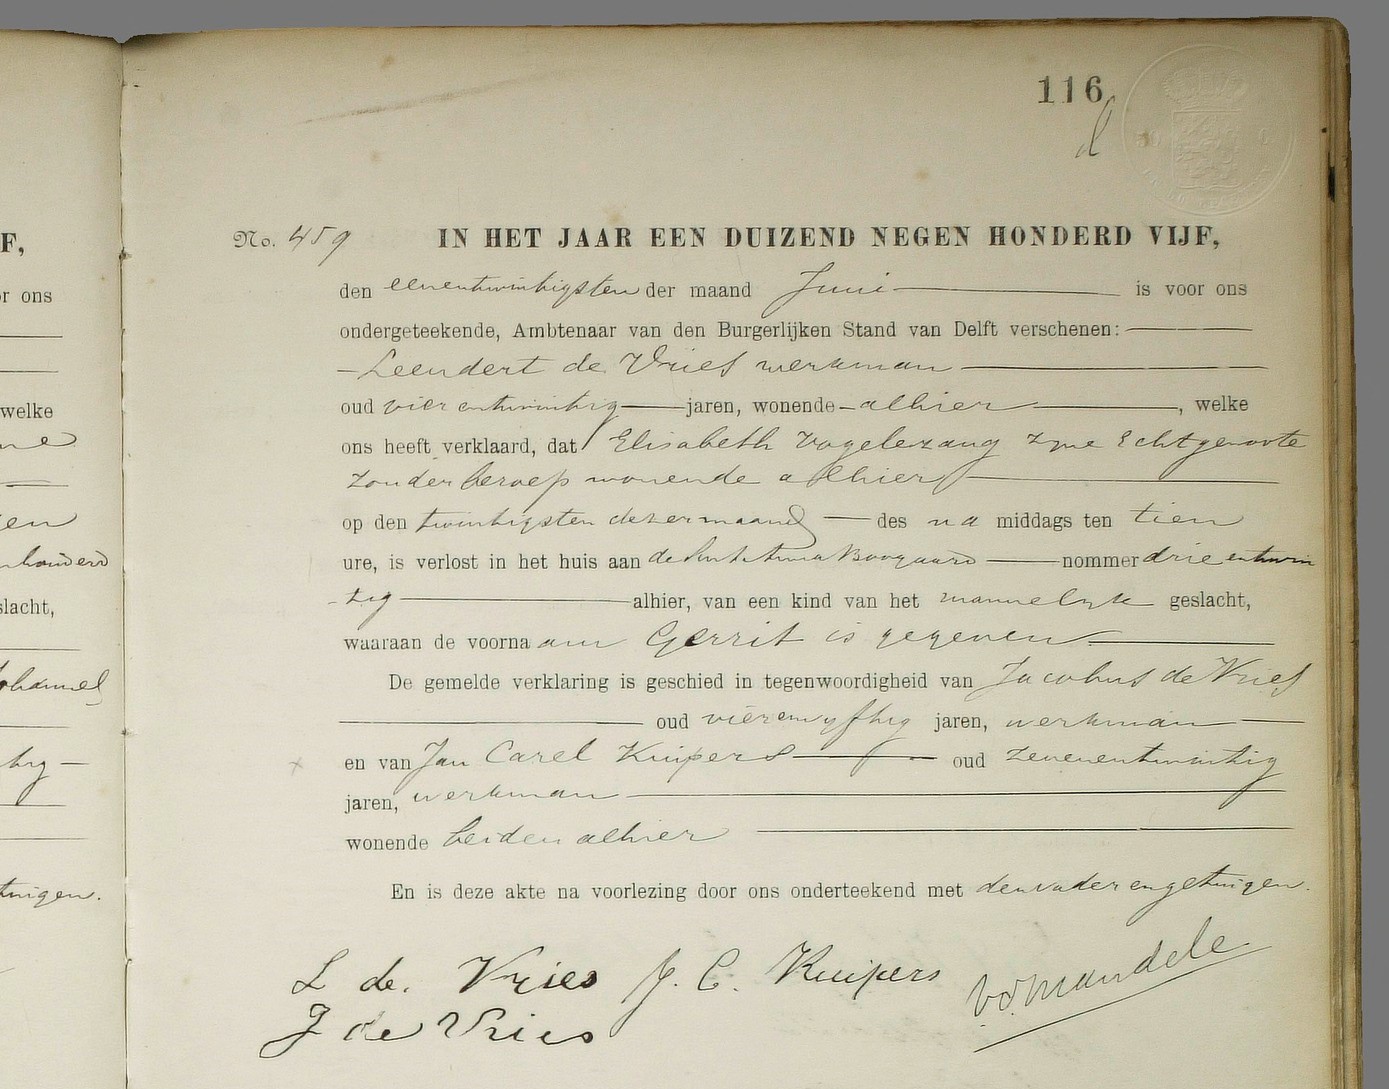 116
No. 459 IN HET JAAR EEN DUIZEND NEGEN HONDERD VIJF,
den eenentwintigsten der maand Juni is voor ons
ondergeteekende, Ambtenaar van den Burgerlijken Stand van Delft verschenen:
Leendert de Vries werkman
oud vier entwintig jaren, wonende alhier, welke
ons heeft verklaard, dat Elisabeth Vogelezang zyne Echtgenoote
zonder beroep wonende alhier
op den twintigsten dezer maand des na middags ten tien
ure, is verlost in het huis aan de Boogaard nommer drie entwin
tig alhier, van een kind van het mannelyk geslacht,
waaraan de voornaam Gerrit is gegeven
De gemelde verklaring is geschied in tegenwoordigheid van Jacobus de Vries
oud vierenvyftig jaren, werkman
en van Jan Carel Kuipers oud zevenentwintig
jaren, werkman
wonende beiden alhier
En is deze akte na voorlezing door ons onderteekend met den vader en getuigen.
L de. Vries J. C. Kuipers v.d. Mandele
J de Vries
F,
or ons
welke
ne
gen
honderd
slacht,
ohannes
tig
tuigen.